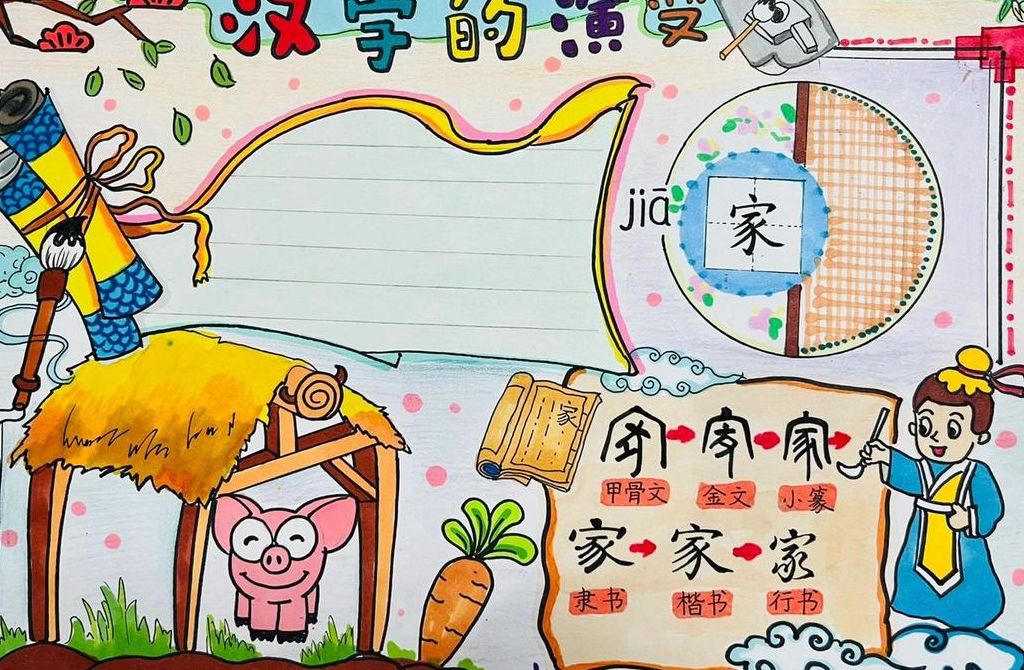 汉字的演变
jiā
家
家
家 家 家
甲骨文 金文 小篆
家 家 家
隶书 楷书 行书